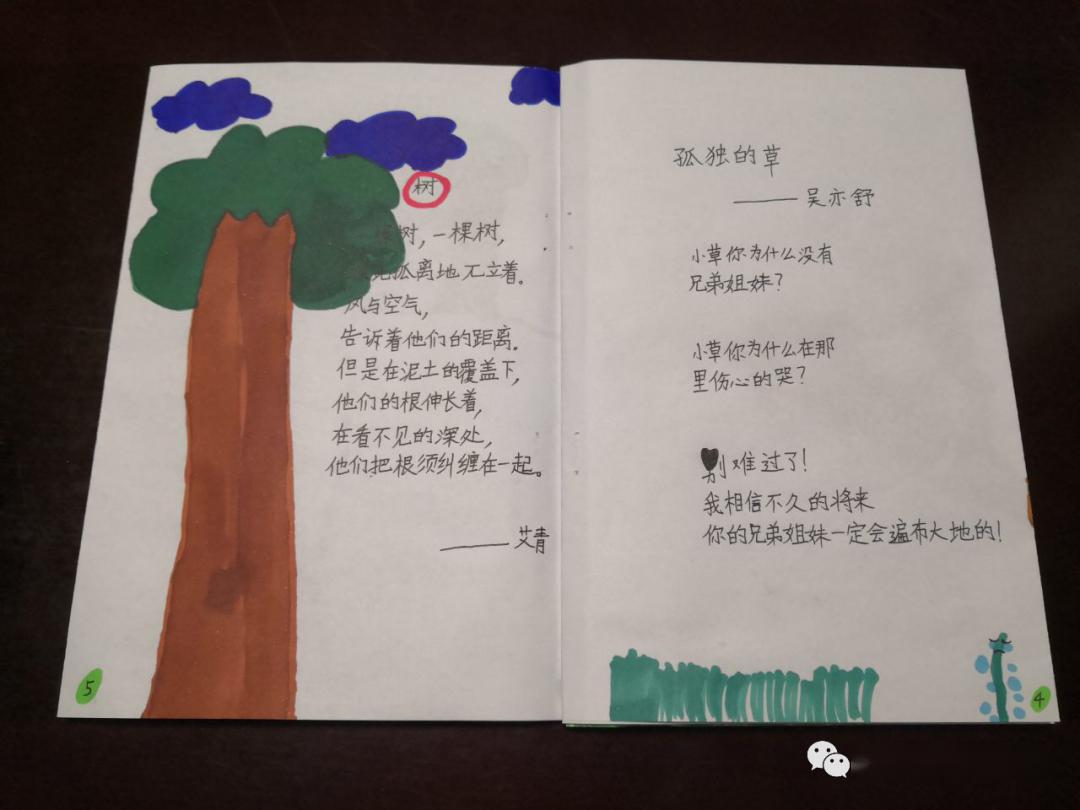 树
棵树，一棵树，
孤离地兀立着。
风与空气，
告诉着他们的距离.
但是在泥土的覆盖下，
他们的根伸长着，
在看不见的深处，
他们把根须纠缠在一起。
——艾青
5
孤独的草
——吴亦舒
小草你为什么没有
兄弟姐妹？
小草你为什么在那
里伤心的哭？
别难过了！
我相信不久的将来
你的兄弟姐妹一定会遍布大地的！
4